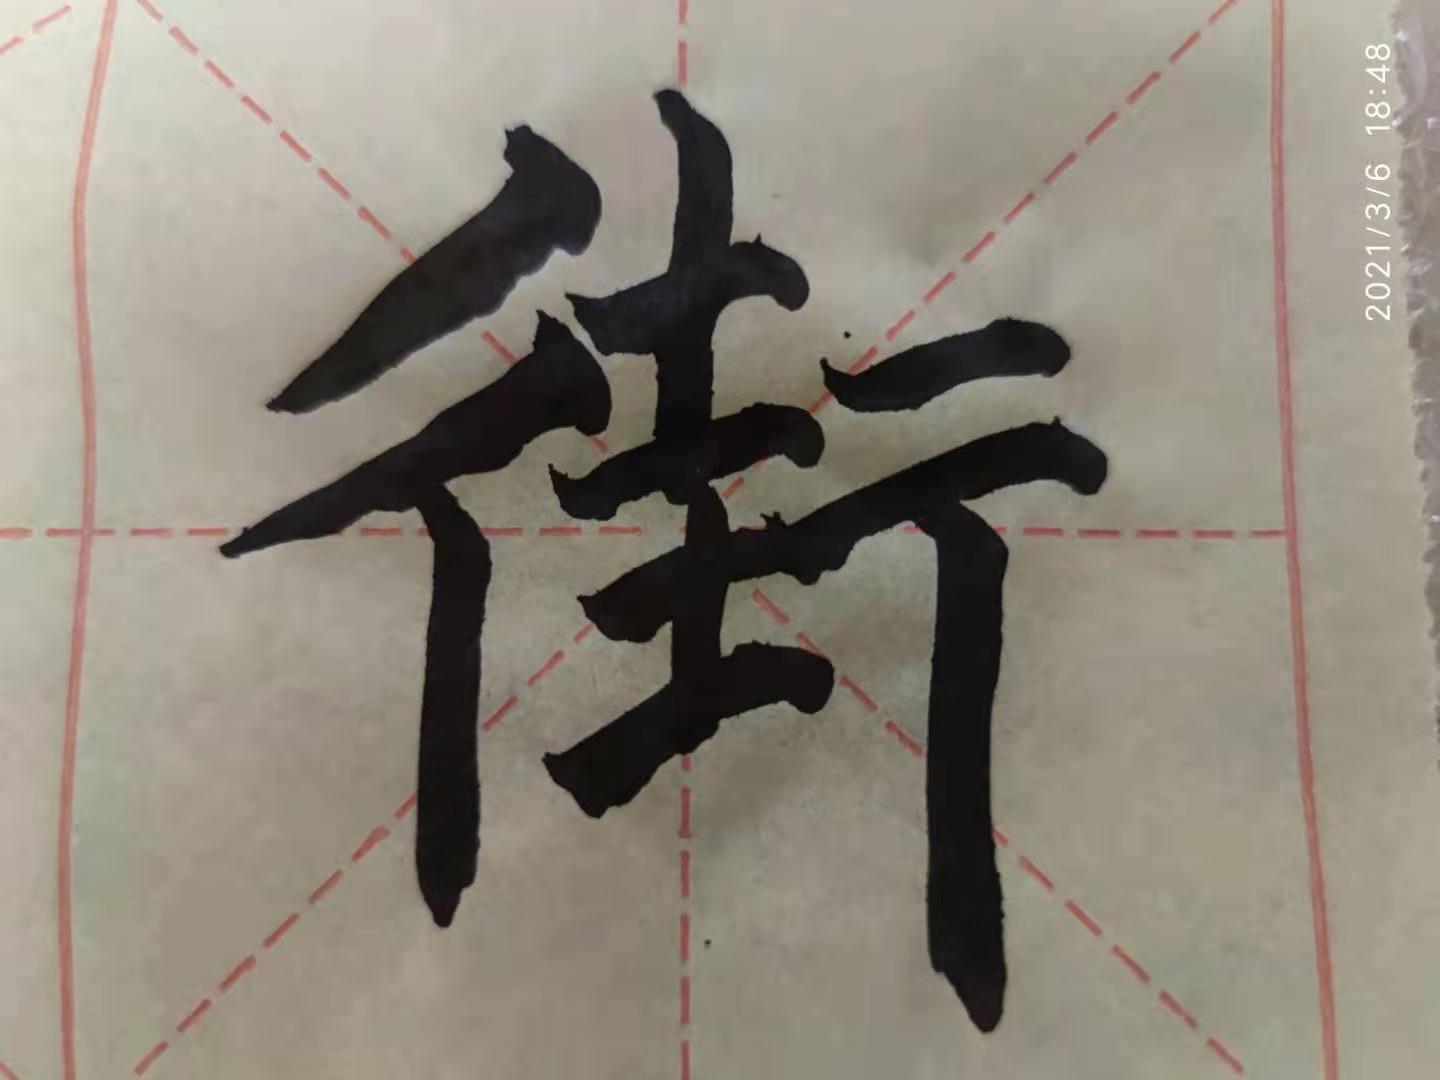 街
2021/3/6 18:48